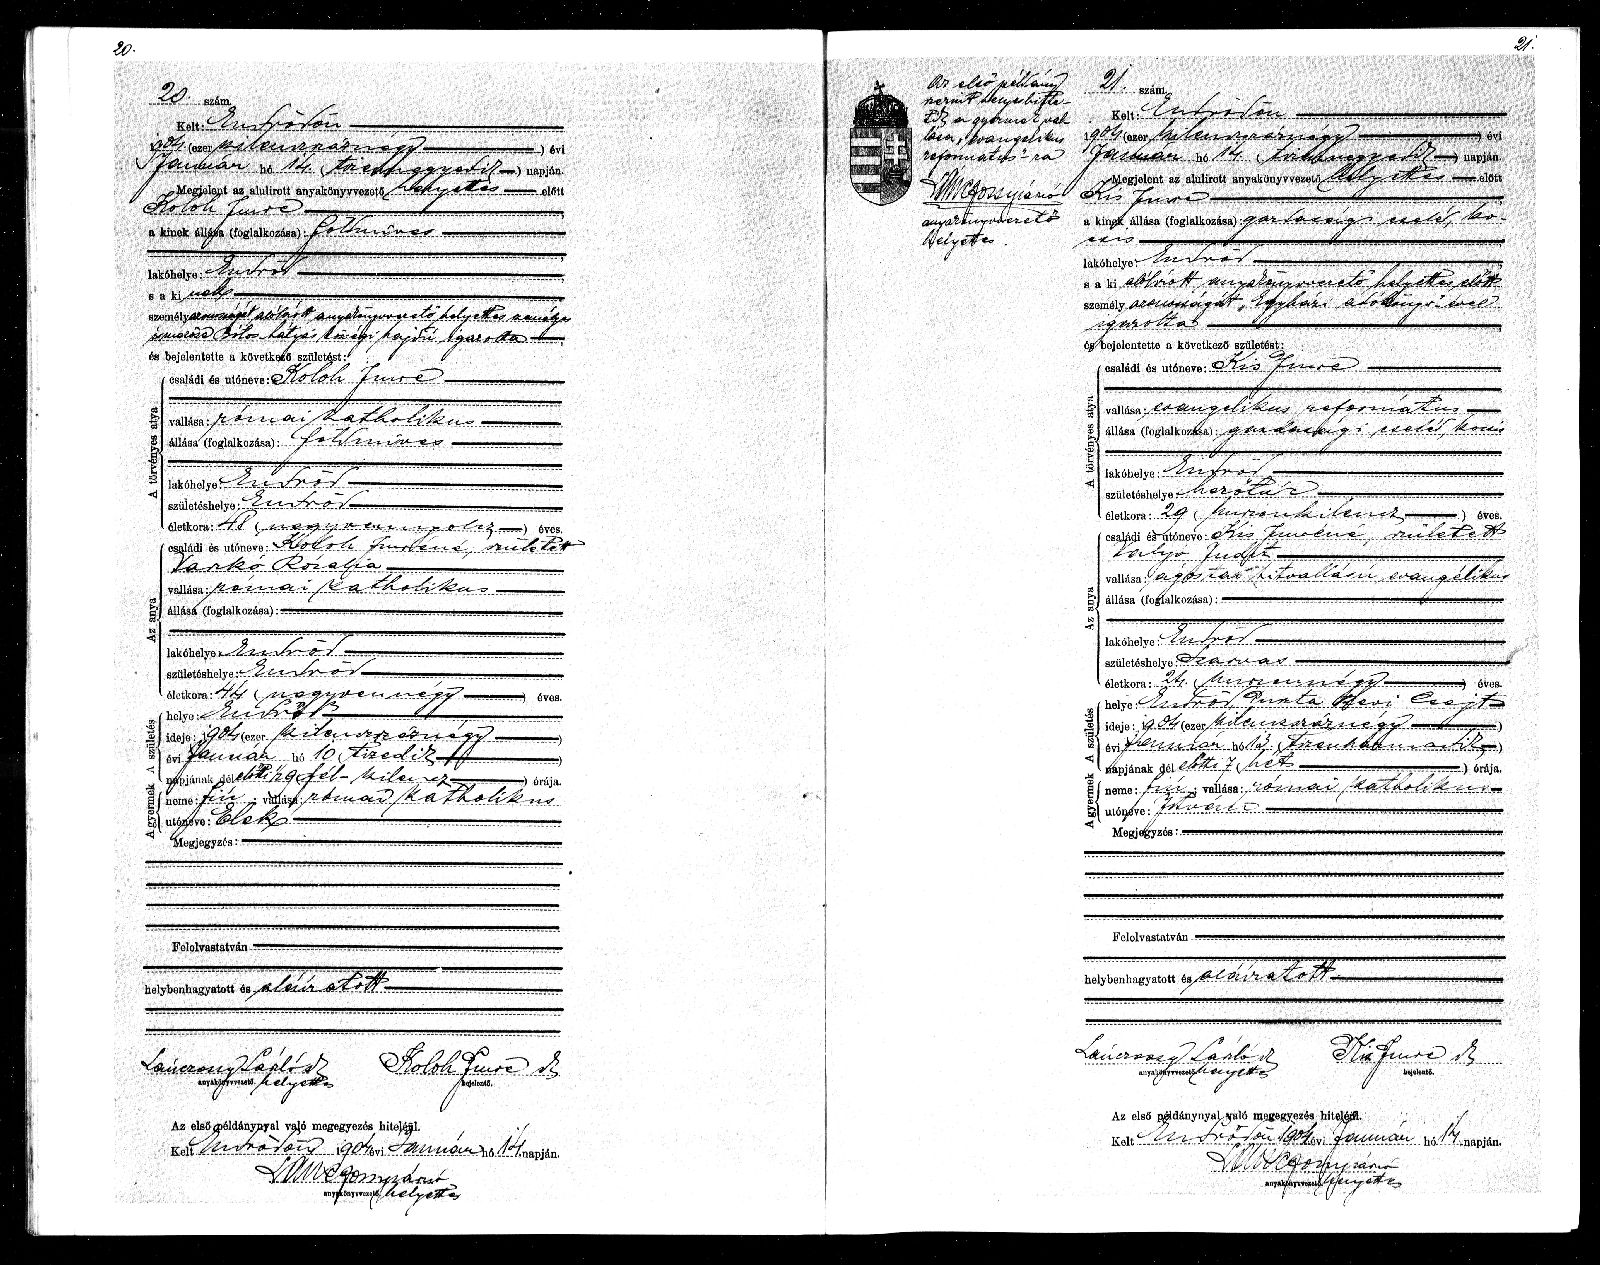 20.
20. szám.
Kelt: Endrődön
1904 (ezer kilenczszáznégy) évi
Január hó 14 (tizennegyedik) napján.
Megjelent az alulirott anyakönyvvezető helyettes előtt
Koloh Imre
a kinek állása (foglalkozása): földmives
lakóhelye: Endrőd
s a ki nek
személyazonosságát alólirott anyakönyvvezető helyettes
községi hajdú igazolta
és bejelentette a következő születést:
A törvényes atya
családi és utóneve: Koloh Imre
vallása: római katholikus
állása (foglalkozása): földmives
lakóhelye: Endrőd
születéshelye: Endrőd
életkora: 48 (negyvennyolcz) éves.
Az anya
családi és utóneve: Koloh Imréné, született
Varkó Rozália
vallása: római katholikus
állása (foglalkozása):
lakóhelye: Endrőd
születéshelye: Endrőd
életkora: 44 (negyvennégy) éves.
A születés
helye: Endrőd
ideje: 1904 (ezer kilenczszáznégy)
évi Január hó 10 (tizedik)
napjának dél előtti ½9 (fél kilencz) órája.
A gyermek
neme: fiú; vallása: római katholikus
utóneve: Elek
Megjegyzés:
Felolvastatván
helybenhagyatott és aláiratott
László sk Koloh Imre sk
anyakönyvvezető helyettes bejelentő.
Az első példánynyal való megegyezés hiteléül.
Kelt Endrődön 1904 évi Január hó 14 napján.
anyakönyvvezető helyettes
21.
Az első példány
szerint helyesbitte-
tik a gyermek val-
lása, "evangelikus
reformatus"-ra
anyakönyvvezető
helyettes.
21. szám.
Kelt: Endrődön
1904 (ezer kilenczszáznégy) évi
Január hó 14 (tizennegyedik) napján.
Megjelent az alulirott anyakönyvvezető helyettes előtt
Kis Imre
a kinek állása (foglalkozása): gazdasági cseléd, ko-
csis
lakóhelye: Endrőd
s a ki alólirott anyakönyvvezető helyettes előtt
személy azonosságát "Egyházi adókönyv"-vel
igazolta
és bejelentette a következő születést:
A törvényes atya
családi és utóneve: Kis Imre
vallása: evangelikus református
állása (foglalkozása): gazdasági cseléd, kocsis
lakóhelye: Endrőd
születéshelye: Mezőtúr
életkora: 29 (huszonkilencz) éves.
Az anya
családi és utóneve: Kis Imréné, született
Valyó Judit
vallása: ágostai hitvallású evangélikus
állása (foglalkozása):
lakóhelye: Endrőd
születéshelye: Szarvas
életkora: 24 (huszonnégy) éves.
A születés
helye: Endrőd
ideje: 1904 (ezer kilenczszáznégy)
évi Január hó 13 (tizenharmadik)
napjának dél előtti 7 (hét) órája.
A gyermek
neme: fiú; vallása: római katholikus
utóneve: István
Megjegyzés:
Felolvastatván
helybenhagyatott és aláiratott
László sk Kis Imre sk
anyakönyvvezető helyettes bejelentő.
Az első példánynyal való megegyezés hiteléül.
Kelt Endrődön 1904 évi Január hó 14 napján.
anyakönyvvezető helyettes